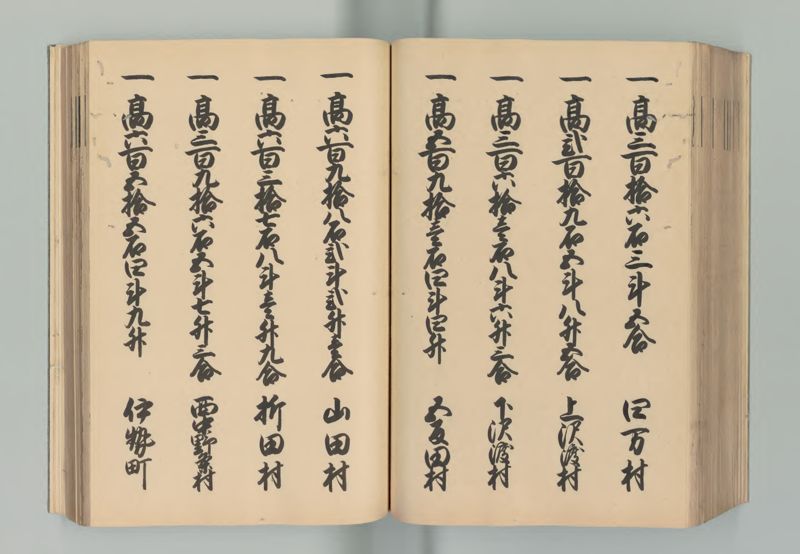 一 高三百拾六石三斗五合 四万村
一 高弐百拾九石五斗八升五合 上沢渡村
一 高三百六拾壱石八斗六升三合 下沢渡村
一 高五百九拾壱石四斗四升 五反田村
一 高六百九拾八石弐斗弐升壱合 山田村
一 高六百三拾七石八斗壱升九合 折田村
一 高三百九拾六石五斗七升三合 西中野条村
一 高六百五拾五石四斗九升 伊勢町